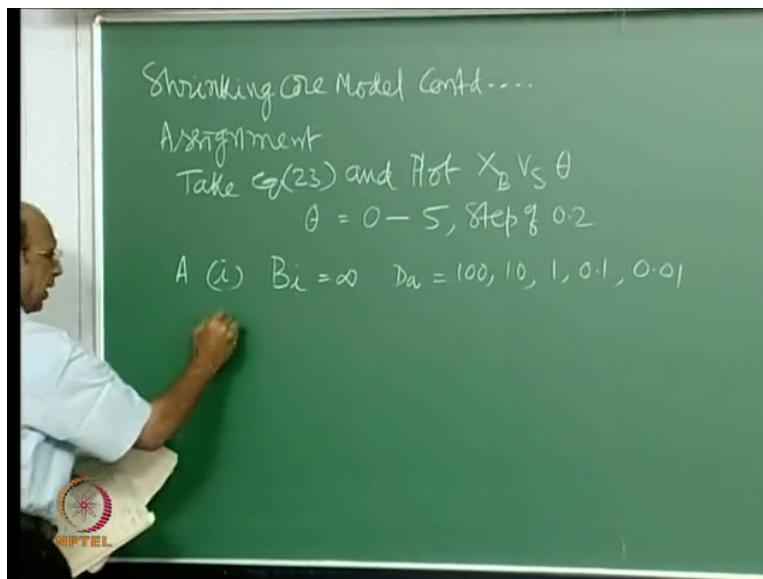 Shrinking Core Model Contd....
Assignment
Take eq(23) and Plot X_B Vs θ
θ = 0 - 5, Step of 0.2
A (i) Bi = ∞ Da = 100, 10, 1, 0.1, 0.01
NPTEL